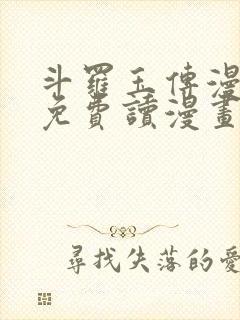 斗羅玉傳漫
免費讀漫畫
尋找失落的愛